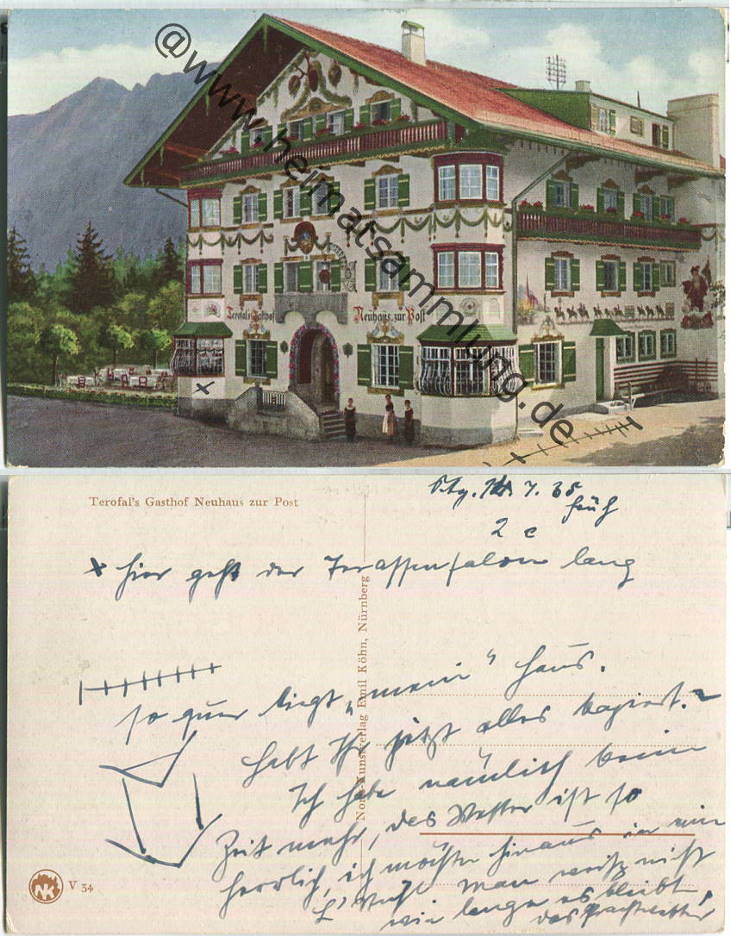 @www.heimatsammlung.de
Terofal's Gasthof
Neuhaus zur Post
Terofal's Gasthof Neuhaus zur Post
7. 35
früh
2 c
x hier geht der Terassensalon lang
so quer liegt "mein" Haus.
habt Ihr jetzt alles kapiert.
Ich habe nämlich keine
Zeit mehr, das Wetter ist so
herrlich, ich möchte hinaus
man weiss nicht
wie lange es bleibt
Noris-Kunstverlag Emil Köhn, Nürnberg
NK
V 34